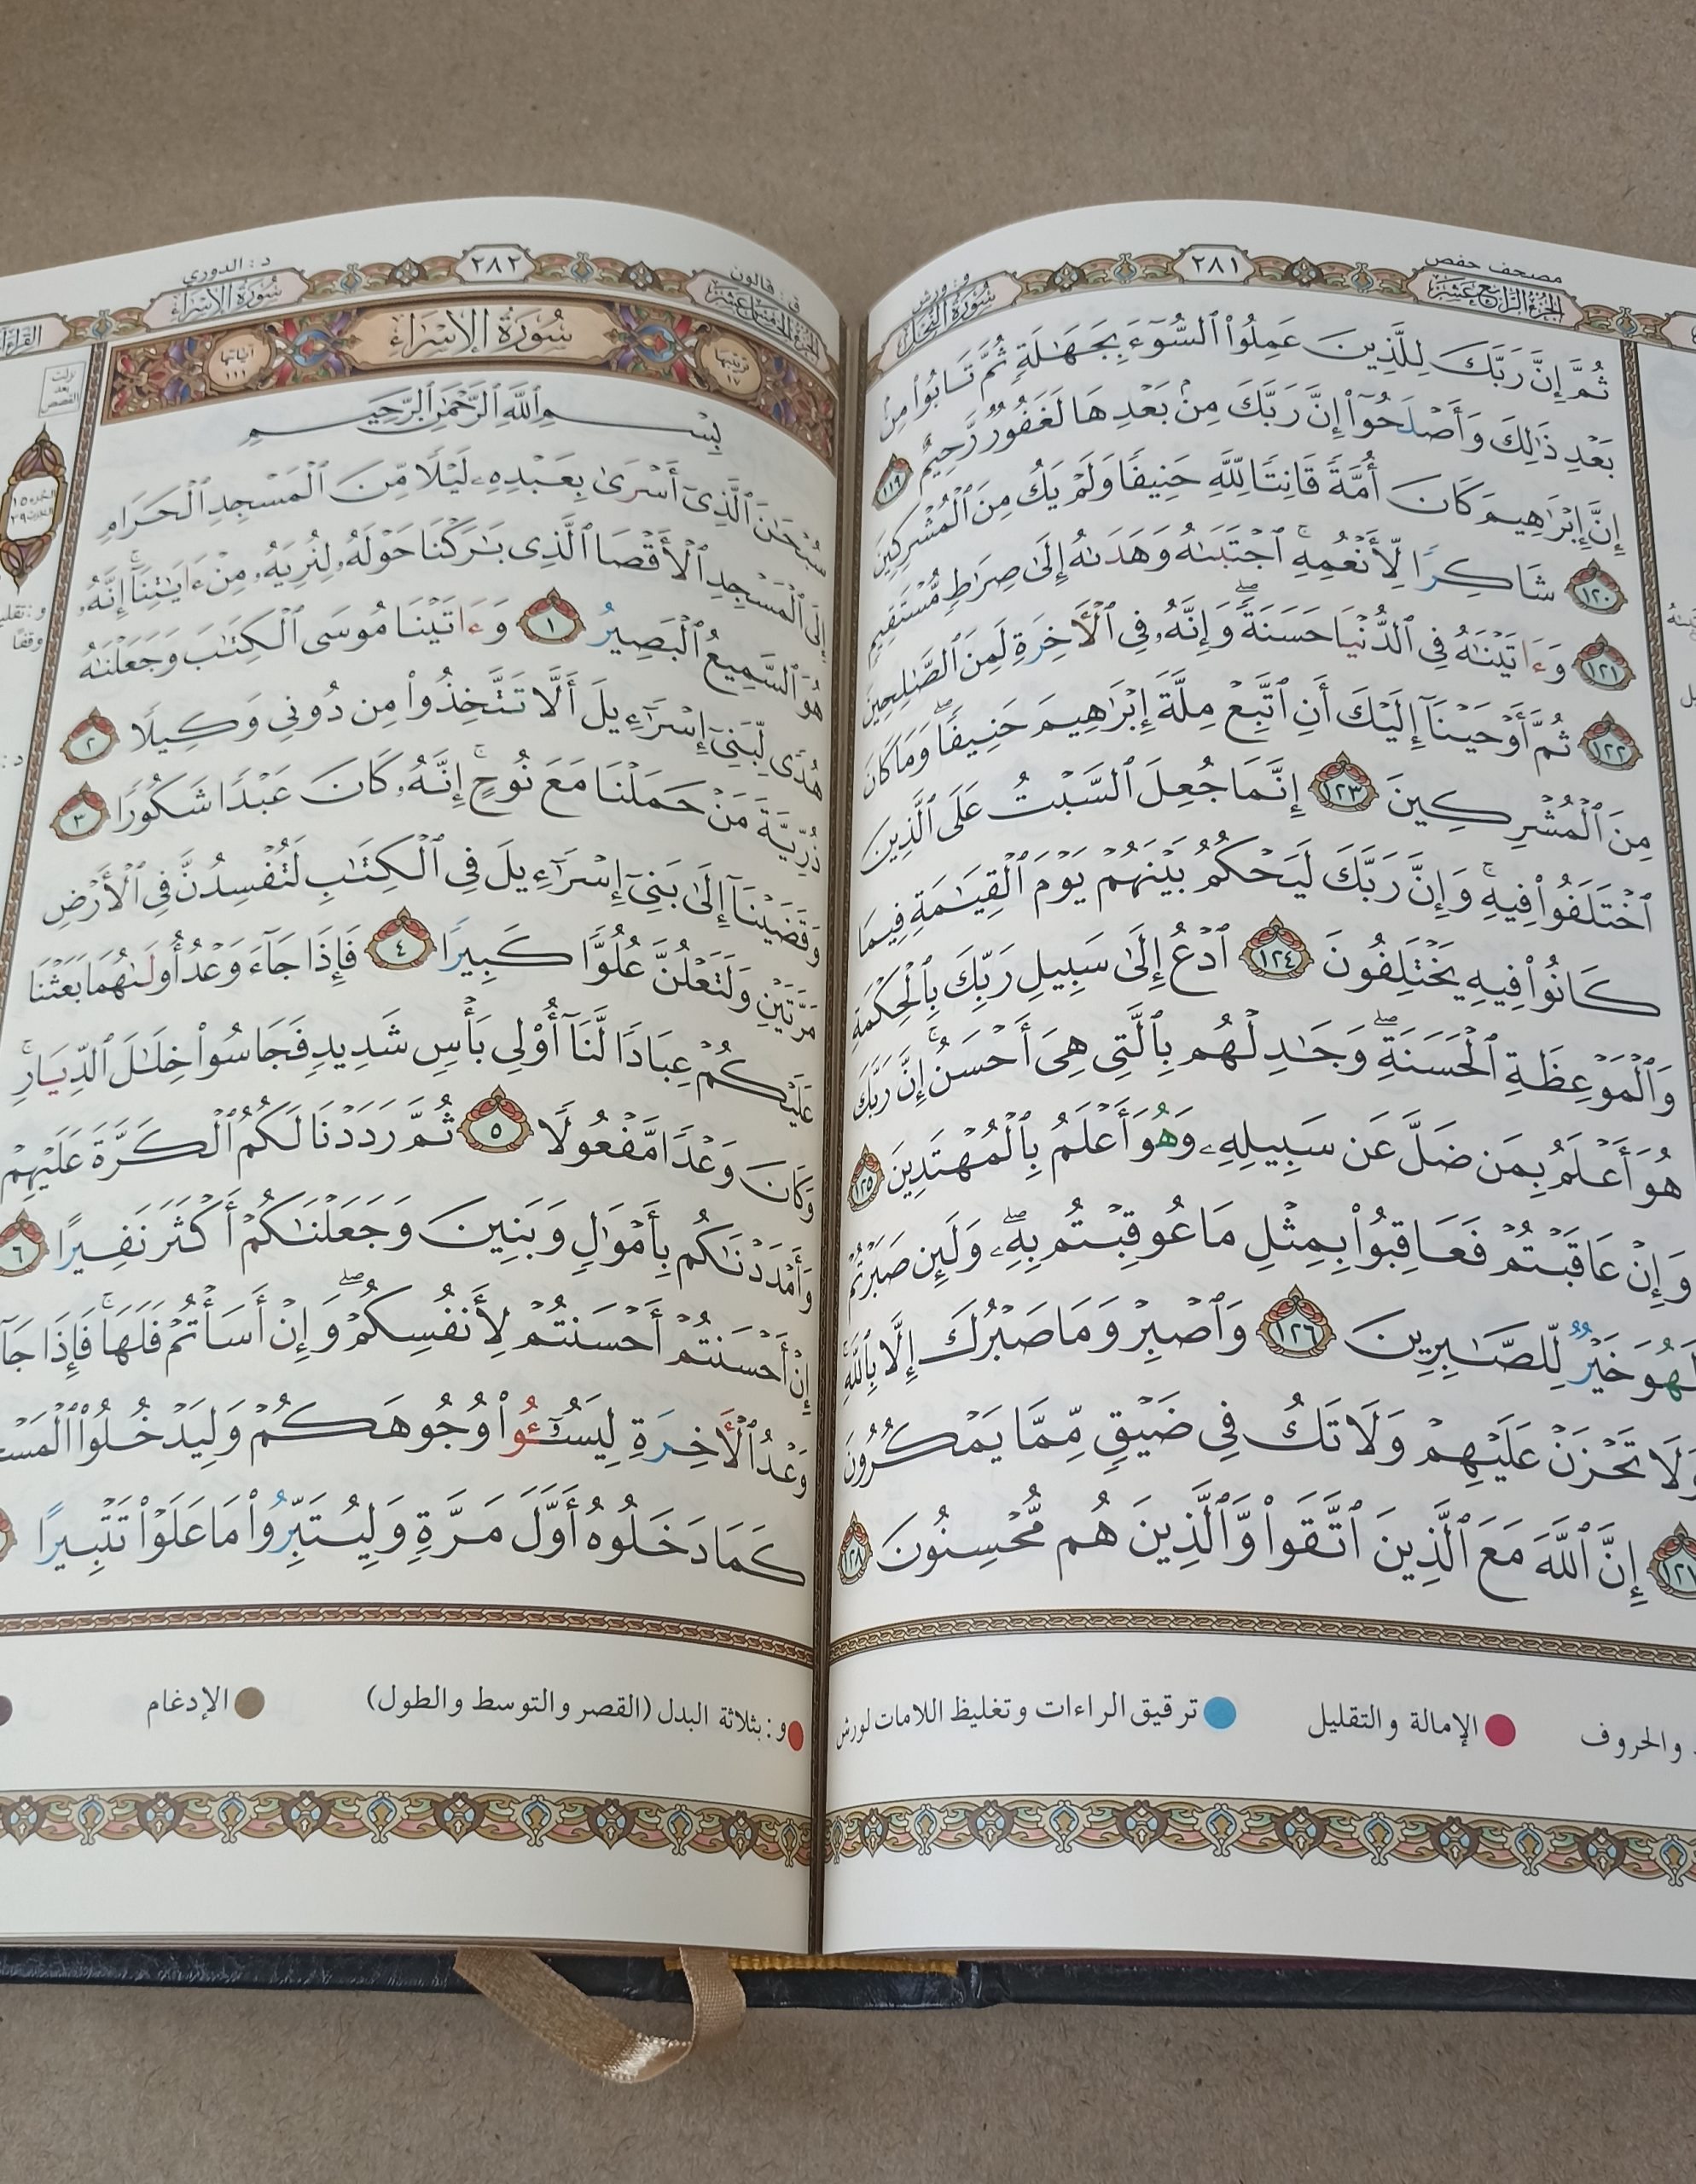 مصحف حفص
الجزء الرابع عشر
٢٨١
و: ورش
سورة النحل
ثُمَّ إِنَّ رَبَّكَ لِلَّذِينَ عَمِلُوا۟ ٱلسُّوٓءَ بِجَهَٰلَةٍ ثُمَّ تَابُوا۟ مِنۢ
بَعْدِ ذَٰلِكَ وَأَصْلَحُوٓا۟ إِنَّ رَبَّكَ مِنۢ بَعْدِهَا لَغَفُورٌ رَّحِيمٌ ١١٩
إِنَّ إِبْرَٰهِيمَ كَانَ أُمَّةً قَانِتًا لِّلَّهِ حَنِيفًا وَلَمْ يَكُ مِنَ ٱلْمُشْرِكِينَ
١٢٠ شَاكِرًا لِّأَنْعُمِهِ ۚ ٱجْتَبَىٰهُ وَهَدَىٰهُ إِلَىٰ صِرَٰطٍ مُّسْتَقِيمٍ
١٢١ وَءَاتَيْنَٰهُ فِى ٱلدُّنْيَا حَسَنَةً ۖ وَإِنَّهُۥ فِى ٱلْأَخِرَةِ لَمِنَ ٱلصَّٰلِحِينَ
١٢٢ ثُمَّ أَوْحَيْنَآ إِلَيْكَ أَنِ ٱتَّبِعْ مِلَّةَ إِبْرَٰهِيمَ حَنِيفًا ۖ وَمَا كَانَ
مِنَ ٱلْمُشْرِكِينَ ١٢٣ إِنَّمَا جُعِلَ ٱلسَّبْتُ عَلَى ٱلَّذِينَ
ٱخْتَلَفُوا۟ فِيهِ ۚ وَإِنَّ رَبَّكَ لَيَحْكُمُ بَيْنَهُمْ يَوْمَ ٱلْقِيَٰمَةِ فِيمَا
كَانُوا۟ فِيهِ يَخْتَلِفُونَ ١٢٤ ٱدْعُ إِلَىٰ سَبِيلِ رَبِّكَ بِٱلْحِكْمَةِ
وَٱلْمَوْعِظَةِ ٱلْحَسَنَةِ ۖ وَجَٰدِلْهُم بِٱلَّتِى هِىَ أَحْسَنُ ۚ إِنَّ رَبَّكَ
هُوَ أَعْلَمُ بِمَن ضَلَّ عَن سَبِيلِهِۦ وَهُوَ أَعْلَمُ بِٱلْمُهْتَدِينَ ١٢٥
وَإِنْ عَاقَبْتُمْ فَعَاقِبُوا۟ بِمِثْلِ مَا عُوقِبْتُم بِهِۦ ۖ وَلَئِن صَبَرْتُمْ
لَهُوَ خَيْرٌ لِّلصَّٰبِرِينَ ١٢٦ وَٱصْبِرْ وَمَا صَبْرُكَ إِلَّا بِٱللَّهِ ۚ
وَلَا تَحْزَنْ عَلَيْهِمْ وَلَا تَكُ فِى ضَيْقٍ مِّمَّا يَمْكُرُونَ
١٢٧ إِنَّ ٱللَّهَ مَعَ ٱلَّذِينَ ٱتَّقَوا۟ وَّٱلَّذِينَ هُم مُّحْسِنُونَ ١٢٨
والحروف
الإمالة والتقليل
ترقيق الراءات وتغليظ اللامات لورش
ق: قالون
الجزء الخامس عشر
٢٨٢
د: الدوري
سورة الإسراء
ترتيبها ١٧
سُورَةُ الإِسْرَاءِ
آياتها ١١١
بِسْمِ ٱللَّهِ ٱلرَّحْمَٰنِ ٱلرَّحِيمِ
سُبْحَٰنَ ٱلَّذِىٓ أَسْرَىٰ بِعَبْدِهِۦ لَيْلًا مِّنَ ٱلْمَسْجِدِ ٱلْحَرَامِ
إِلَى ٱلْمَسْجِدِ ٱلْأَقْصَا ٱلَّذِى بَٰرَكْنَا حَوْلَهُۥ لِنُرِيَهُۥ مِنْ ءَايَٰتِنَآ ۚ إِنَّهُۥ
هُوَ ٱلسَّمِيعُ ٱلْبَصِيرُ ١ وَءَاتَيْنَا مُوسَى ٱلْكِتَٰبَ وَجَعَلْنَٰهُ
هُدًى لِّبَنِىٓ إِسْرَٰٓءِيلَ أَلَّا تَتَّخِذُوا۟ مِن دُونِى وَكِيلًا ٢
ذُرِّيَّةَ مَنْ حَمَلْنَا مَعَ نُوحٍ ۚ إِنَّهُۥ كَانَ عَبْدًا شَكُورًا ٣
وَقَضَيْنَآ إِلَىٰ بَنِىٓ إِسْرَٰٓءِيلَ فِى ٱلْكِتَٰبِ لَتُفْسِدُنَّ فِى ٱلْأَرْضِ
مَرَّتَيْنِ وَلَتَعْلُنَّ عُلُوًّا كَبِيرًا ٤ فَإِذَا جَآءَ وَعْدُ أُولَىٰهُمَا بَعَثْنَا
عَلَيْكُمْ عِبَادًا لَّنَآ أُو۟لِى بَأْسٍ شَدِيدٍ فَجَاسُوا۟ خِلَٰلَ ٱلدِّيَارِ ۚ
وَكَانَ وَعْدًا مَّفْعُولًا ٥ ثُمَّ رَدَدْنَا لَكُمُ ٱلْكَرَّةَ عَلَيْهِمْ
وَأَمْدَدْنَٰكُم بِأَمْوَٰلٍ وَبَنِينَ وَجَعَلْنَٰكُمْ أَكْثَرَ نَفِيرًا ٦
إِنْ أَحْسَنتُمْ أَحْسَنتُمْ لِأَنفُسِكُمْ ۖ وَإِنْ أَسَأْتُمْ فَلَهَا ۚ فَإِذَا
وَعْدُ ٱلْأَخِرَةِ لِيَسُـۥٓـُٔوا۟ وُجُوهَكُمْ وَلِيَدْخُلُوا۟
كَمَا دَخَلُوهُ أَوَّلَ مَرَّةٍ وَلِيُتَبِّرُوا۟ مَا عَلَوْا۟ تَتْبِيرًا
نزلت
بعد
القصص
الجزء ١٥
الحزب ٢٩
و: بثلاثة البدل (القصر والتوسط والطول)
الإدغام